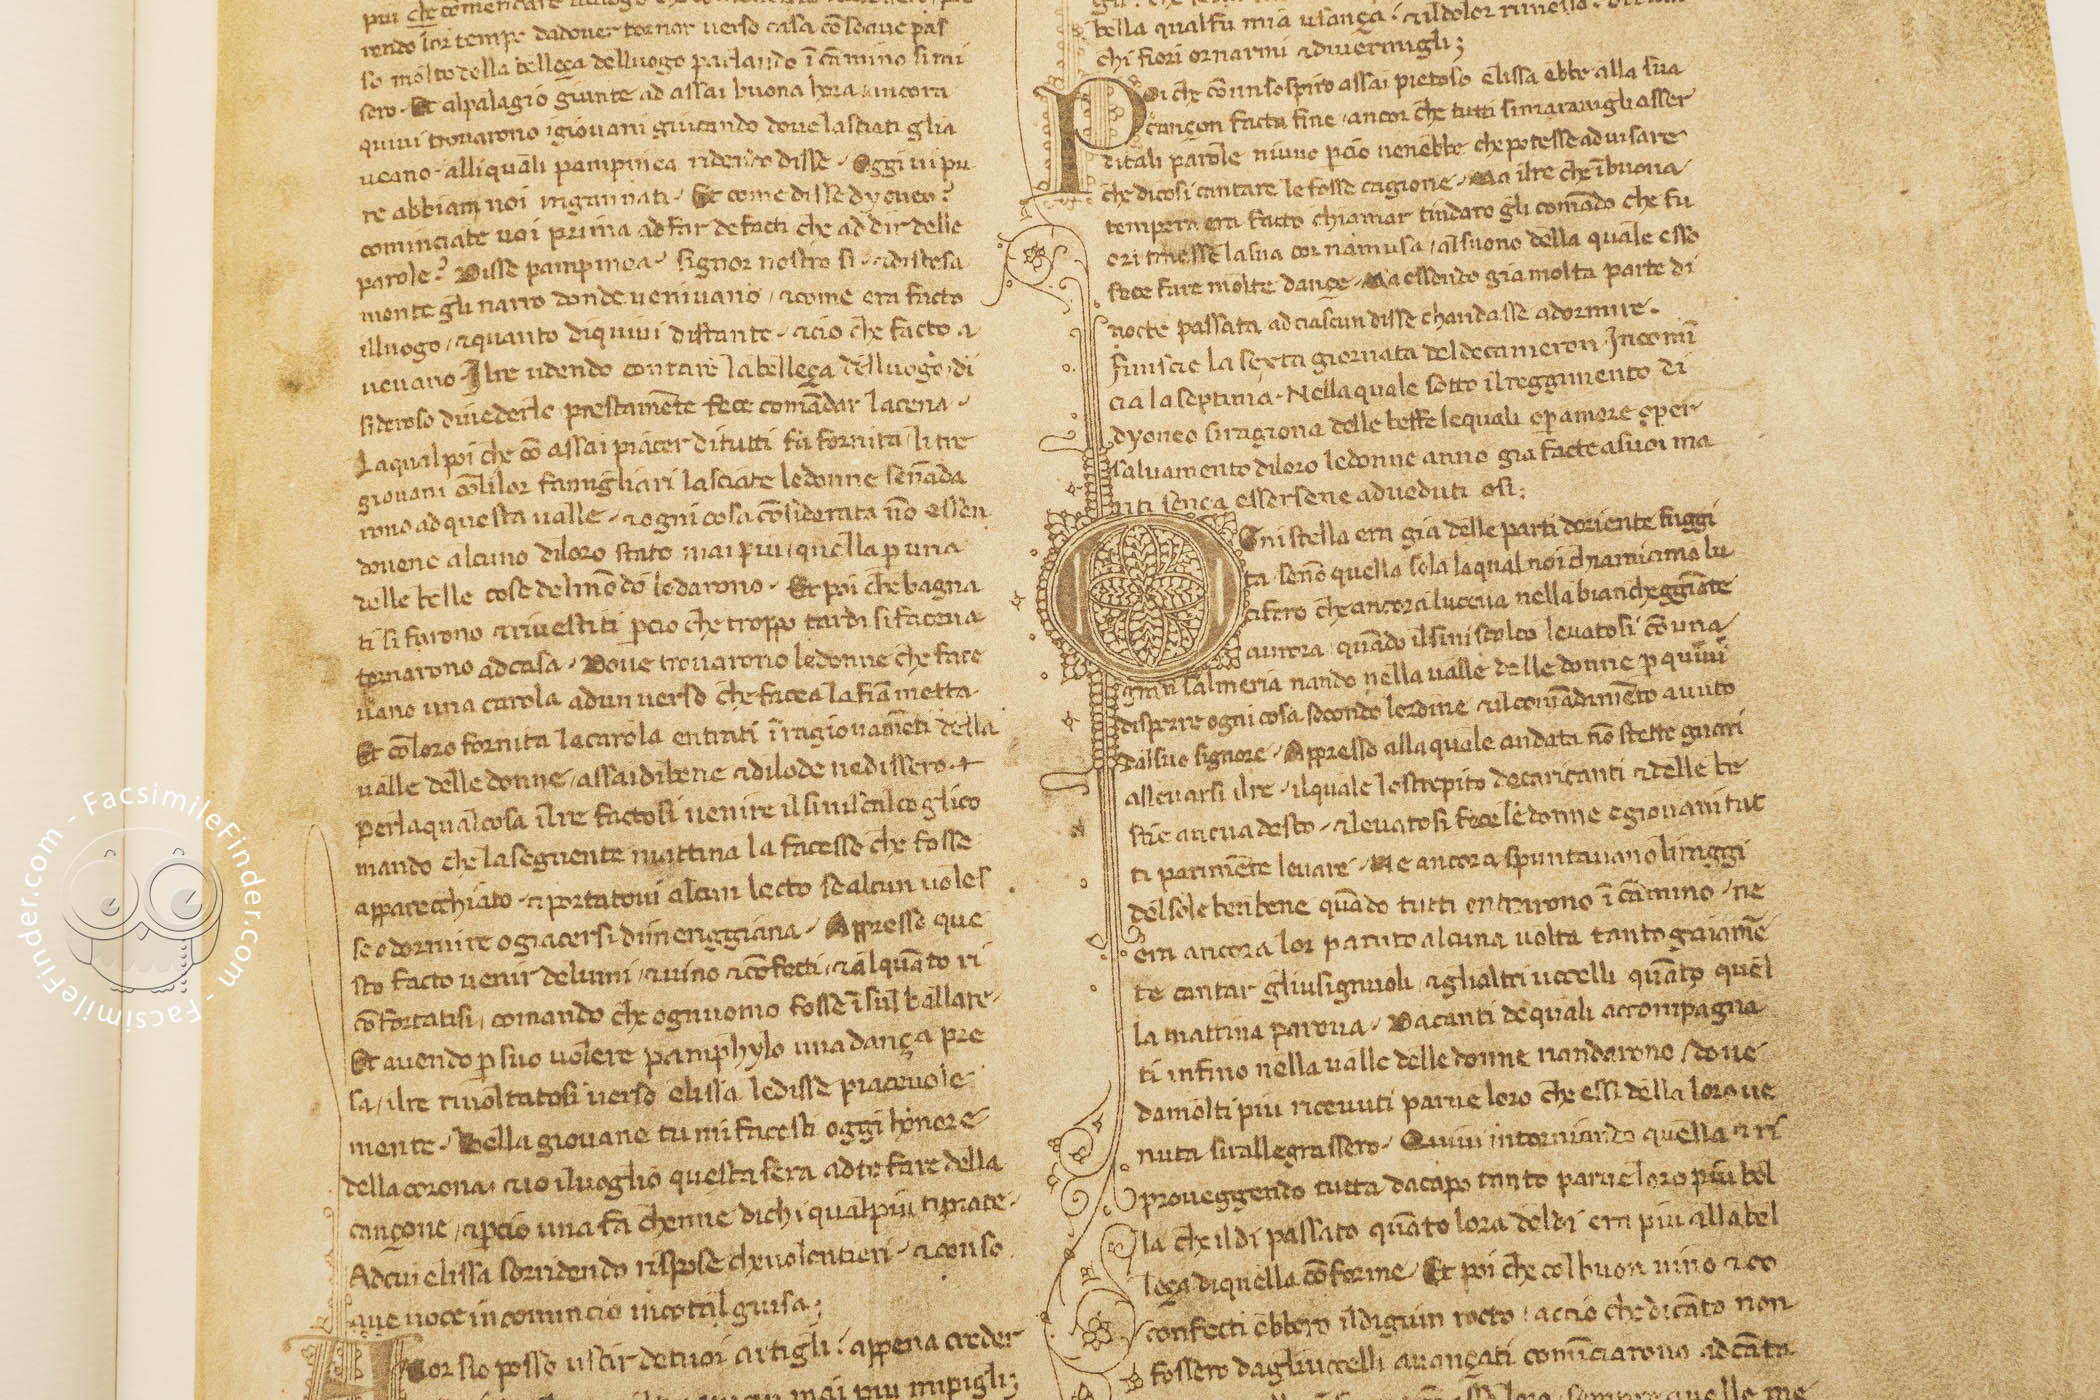 rendo lor tempo da dover tornar verso casa cō soave pas
so molto della belleça delluogo parlando ī cāmino si mi
sero. Et alpalagio giunte ad assai buona hora ancora
quivi trovarono igiovani giucando dove lasciati glia
veano. alliquali pampinea ridendo disse. Oggi vi pu
re abbiam noi ingannati. Et come disse dyoneo?
cominciate voi prima ad far de facti che ad dir delle
parole? Disse pampinea. signor nostro si. & distesa
mente gli narro donde venivano, & come era facto
illuogo, & quanto di quivi distante. & cio che facto a
vevano. Ilre udendo contare la belleça delluogo, di
sideroso di vederlo prestamēte fece comādar lacena.
Laqual poi che cō assai piacer di tutti fu fornita, li tre
giovani cōlilor famigliari lasciate ledonne senādā
rono ad questa valle. & ogni cosa cōsiderata nō essen
dovene alcuno diloro stato mai piu, quella p una
delle belle cose del mōdo lodarono. Et poi che bagna
ti si furono & rivestiti pcio che troppo tardi si faceva
tornarono ad casa. Dove trovarono ledonne che face
vano una carola ad un verso che facea la fiāmetta.
Et cōloro fornita lacarola entrati ī ragionamēti della
valle delle donne, assai di bene & di lode ne dissero.
perlaqualcosa ilre factosi venire il siniscalco gli co
mando che laseguente mattina la facesse che fosse
apparecchiato. & portatovi alcun lecto se alcun voles
se o dormire o giacersi di meriggiana. Appresso que
sto facto venir de lumi, & vino & cōfecti, & alquāto ri
cōfortatisi, comando che ognuomo fosse ī sul ballare.
Et avendo p suo volere pamphylo una dança pre
sa, ilre rivoltatosi verso elissa le disse piacevole
mente. Bella giovane tu mi facesti oggi honore
della corona. & io il voglio questa sera ad te fare della
cançone, & pcio una fa che nne dichi qual piu ti piace.
Ad cui elissa sorridendo rispose che volentieri. & con so
ave voce incomincio in cotal guisa;
Amor sio posso uscir de tuoi artigli: appena creder
mai piu mi pigli;
bella qual fu mia usança: & il dolor rimesso:
chi fiori ornarmi & di vermigli;
Poi che cōun sospiro assai pietoso elissa ebbe alla sua
cançon facta fine, ancor che tutti si maravigliasser
di tali parole niuno pcio venebbe che potesse advisare
che di cosi cantare le fosse cagione. Ma ilre che ī buona
tempera era facto chiamar tindaro gli comādo che fu
ori traesse la sua cornamusa, al suono della quale esso
fece fare molte dançe. Ma essendo gia molta parte di
nocte passata ad ciascun disse chandasse a dormire.
Finiscie la sexta giornata del decameron. Incomī
cia la septima. Nella quale sotto il reggimento di
dyoneo si ragiona delle beffe lequali o p amore o per
salvamento di loro le donne anno gia facte a suoi ma
riti sença essersene adveduti o si;
Ogni stella era gia delle parti doriente fuggi
ta. senō quella sola laqual noi chiamiamo lu
cifero che ancora luceva nella biancheggiāte
aurora. quādo il siniscalco levatosi cō una
gran salmeria nando nella valle delle donne p quivi
disporre ogni cosa secondo lordine & il comādamēto avuto
dal suo signore. Appresso alla quale andata nō stette guari
allevarsi il re. il quale lo strepito de caricanti & delle be
stie aveva desto. & levatosi fece le donne e giovani tut
ti parimēte levare. Ne ancora spuntavano li raggi
del sole ben bene quādo tutti entrarono ī cāmino. ne
era ancora lor paruto alcuna volta tanto gaiamē
te cantar gliusignuoli & gli altri uccelli quāto quel
la mattina pareva. Da canti de quali accompagna
ti infino nella valle delle donne nandarono, dove
da molti piu ricevuti parve loro che essi della loro ve
nuta si rallegrassero. Quivi intorniando quella & ri
proveggendo tutta da capo tanto parve loro piu bel
la che il di passato quāto lora del di era piu alla bel
leça di quella cōforme. Et poi che col buon vino & co
confecti ebbero il digiun rocto, accio che di cāto non
fossero dagli uccelli avançati comīciarono ad cāta